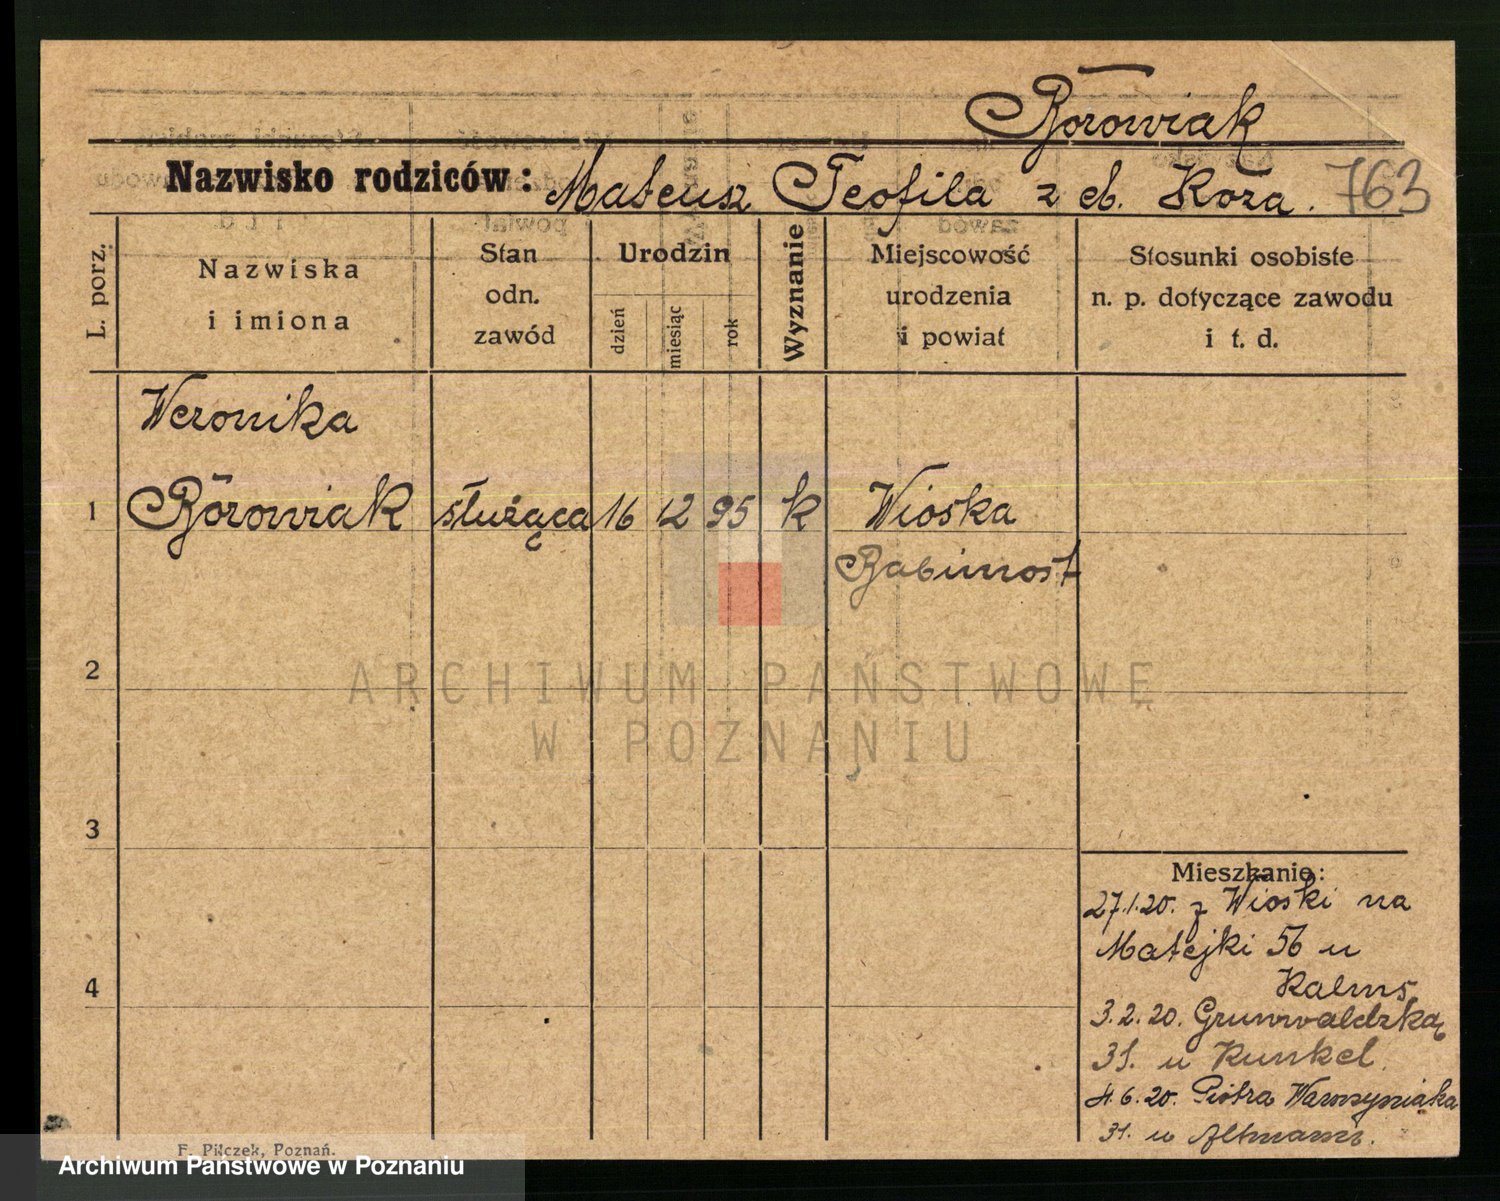 Borowiak
Nazwisko rodziców: Mateusz Teofila z d. Koza. 763
L. porz.
Nazwiska
i imiona
Stan
odn.
zawód
Urodzin
dzień
miesiąc
rok
Wyznanie
Miejscowość
urodzenia
i powiat
Stosunki osobiste
n. p. dotyczące zawodu
i t. d.
Weronika
1 Borowiak służąca 16 12 95 k Wioska
Babimost
2
3
4
Mieszkanie:
27.1.20. z Wioski na
Matejki 56 u
Kalms
3.2.20. Grunwaldzką
31. u Kunkel.
4.6.20. Piotra Wawrzyniaka
31. u Altmann.
F. Pilczek, Poznań.
ARCHIWUM PAŃSTWOWE
W POZNANIU
Archiwum Państwowe w Poznaniu